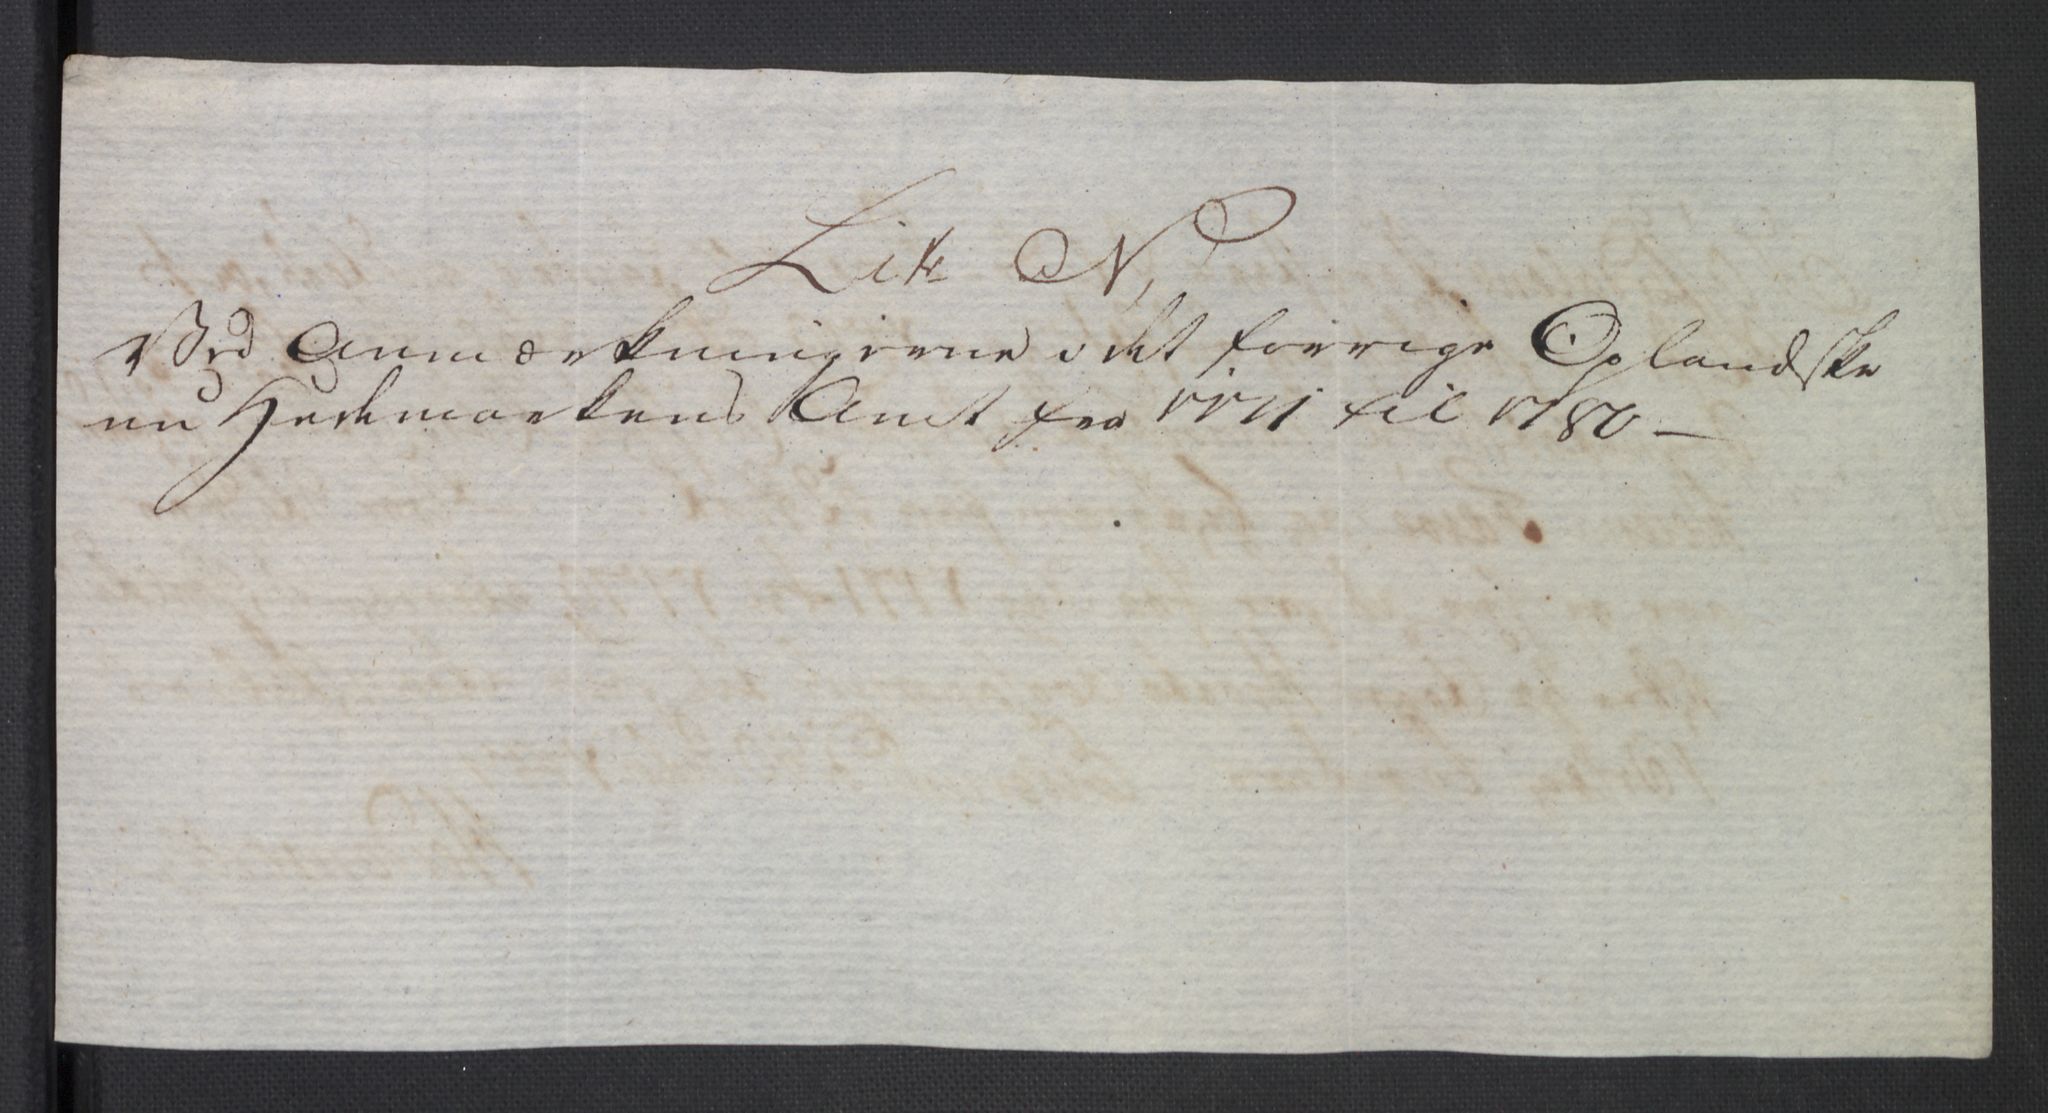 Litr N,
Ved Anmærkningerne i det forrige Oplandske
nu Hedemarkens Amt fra 1771 til 1780 —